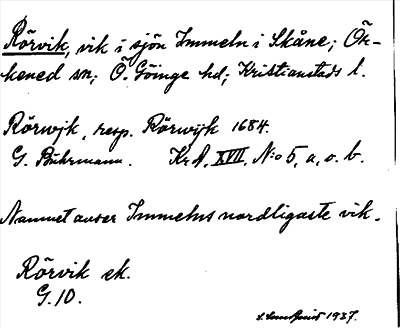 Rörvik, vik i sjön Immeln i Skåne; Ön-
kened sn; Ö. Göinge hd; Kristianstads l.
Rörwjk, resp. Rörwijk 1684.
G. Buhrmann. KrA, XVII, N:o 5, a, o. b.
Namnet avser Immelns nordligaste vik.
Rörvik ek.
G.10.
1937.